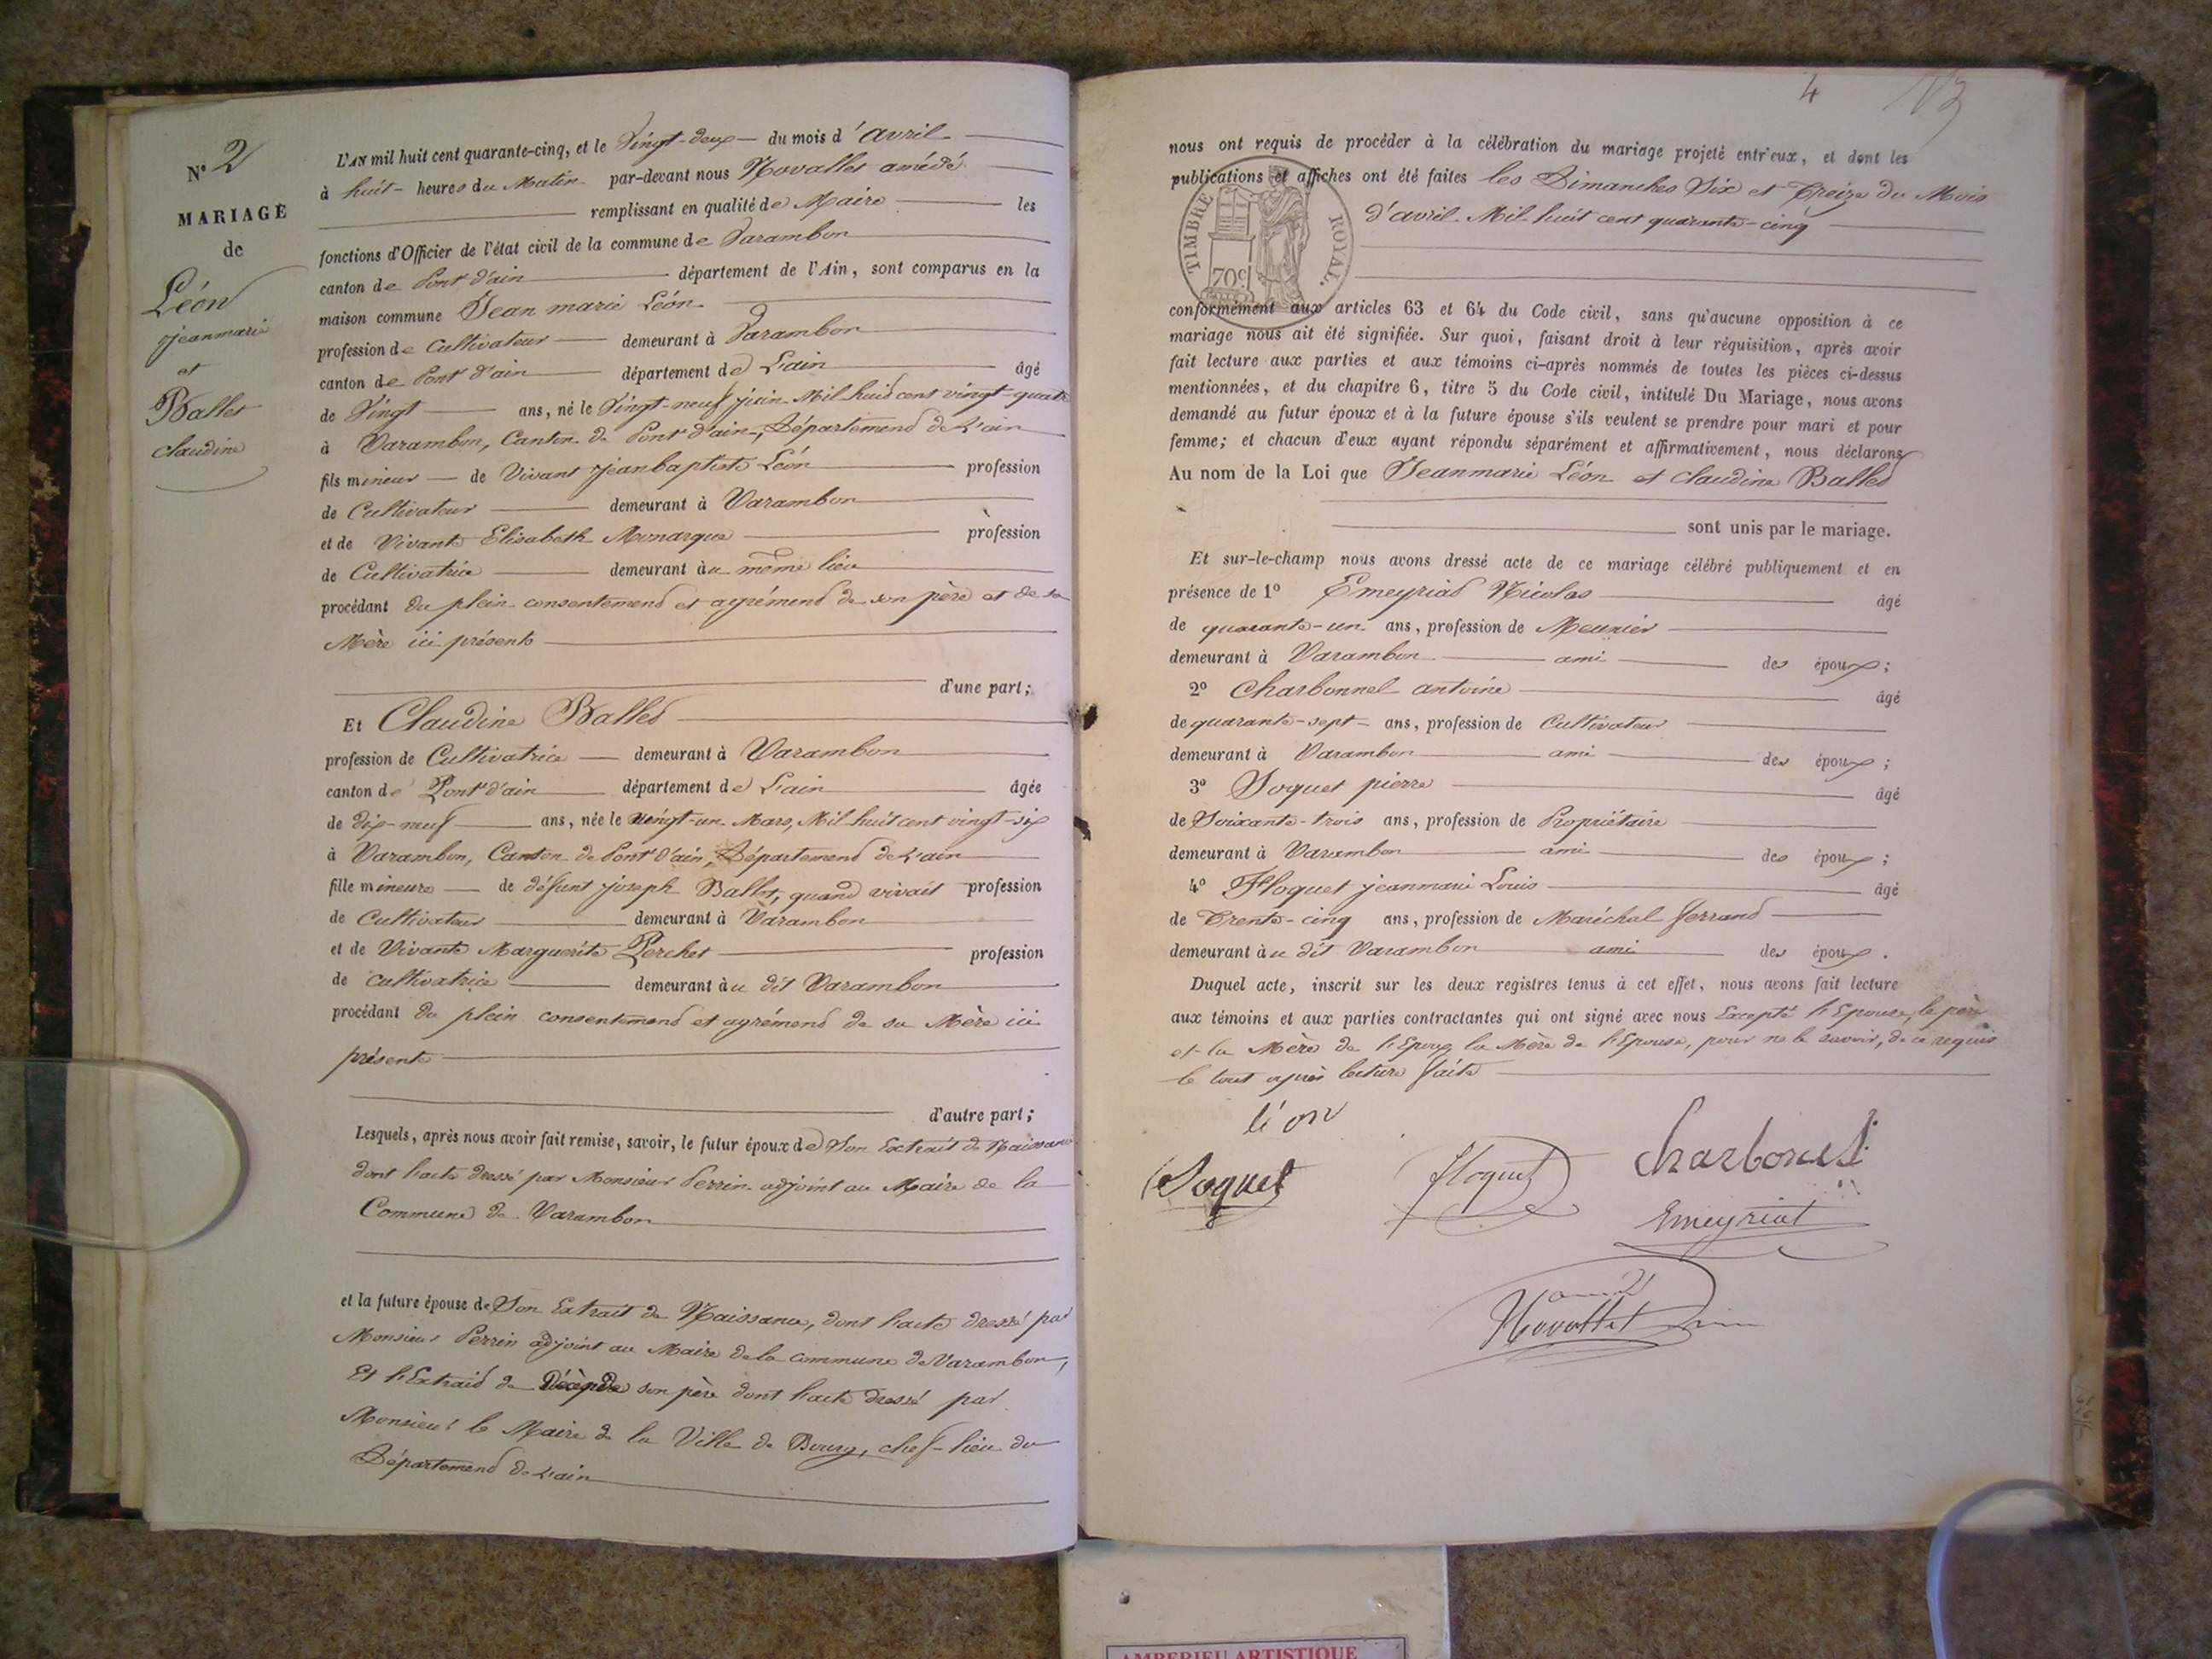 N° 2
MARIAGE
de
Léon
jeanmarie
et
Ballet
claudine
L'AN mil huit cent quarante-cinq, et le Vingt-deux du mois d'avril
à huit heures du Matin par-devant nous Novallet amédé
remplissant en qualité de Maire les
fonctions d'Officier de l'état civil de la commune de Varambon
canton de Pont d'ain département de l'Ain, sont comparus en la
maison commune Jean marie Léon
profession de Cultivateur demeurant à Varambon
canton de Pont d'ain département de L'ain âgé
de Vingt ans, né le Vingt-neuf juin Mil huit cent vingt-quatre
à Varambon, Canton de Pont d'ain, Département de L'ain
fils mineur de Vivant jeanbaptiste Léon profession
de Cultivateur demeurant à Varambon
et de Vivante Elisabeth Monarque profession
de Cultivatrice demeurant au même lieu
procédant du plein consentement et agrément de son père et de sa
Mère ici présents
d'une part;
Et Claudine Ballet
profession de Cultivatrice demeurant à Varambon
canton de Pont d'ain département de L'ain âgée
de dix-neuf ans, née le vingt-un Mars, Mil huit cent vingt-six
à Varambon, Canton de Pont d'ain, Département de L'ain
fille mineure de défunt joseph Ballet, quand vivait profession
de Cultivateur demeurant à Varambon
et de Vivante Marguerite Perchet profession
de cultivatrice demeurant au dit Varambon
procédant du plein consentement et agrément de sa Mère ici
présente
d'autre part;
Lesquels, après nous avoir fait remise, savoir, le futur époux de Son Extrait de Naissance
dont l'acte dressé par Monsieur Perrin adjoint au Maire de la
Commune de Varambon
et la future épouse de Son Extrait de Naissance, dont l'acte dressé par
Monsieur Perrin adjoint au Maire de la commune de Varambon,
Et l'Extrait de Décès de son père dont l'acte dressé par
Monsieur le Maire de la Ville de Bourg, chef-lieu du
Département de L'ain
4
nous ont requis de procéder à la célébration du mariage projeté entr'eux, et dont les
publications et affiches ont été faites les Dimanches Six et Treize du Mois
d'avril Mil huit cent quarante-cinq
TIMBRE ROYAL.
70c
conformément aux articles 63 et 64 du Code civil, sans qu'aucune opposition à ce
mariage nous ait été signifiée. Sur quoi, faisant droit à leur réquisition, après avoir
fait lecture aux parties et aux témoins ci-après nommés de toutes les pièces ci-dessus
mentionnées, et du chapitre 6, titre 5 du Code civil, intitulé Du Mariage, nous avons
demandé au futur époux et à la future épouse s'ils veulent se prendre pour mari et pour
femme; et chacun d'eux ayant répondu séparément et affirmativement, nous déclarons
Au nom de la Loi que Jeanmarie Léon et claudine Ballet
sont unis par le mariage.
Et sur-le-champ nous avons dressé acte de ce mariage célébré publiquement et en
présence de 1° Emeyriat Nicolas âgé
de quarante-un ans, profession de Meunier
demeurant à Varambon ami des époux;
2° Charbonnel antoine âgé
de quarante-sept ans, profession de Cultivateur
demeurant à Varambon ami des époux;
3° Soquet pierre âgé
de Soixante-trois ans, profession de Propriétaire
demeurant à Varambon ami des époux;
4° Floquet jeanmarie Louis âgé
de Trente-cinq ans, profession de Maréchal ferrand
demeurant au dit Varambon ami des époux.
Duquel acte, inscrit sur les deux registres tenus à cet effet, nous avons fait lecture
aux témoins et aux parties contractantes qui ont signé avec nous Excepté l'Epouse, le père
et la Mère de l'Epoux, la Mère de l'Epouse, pour ne le savoir, de ce requis
le tout après lecture faite
léon
Soquet
floquet
charbonel
Emeyriat
Novallet
AMBERIEU ARTISTIQUE